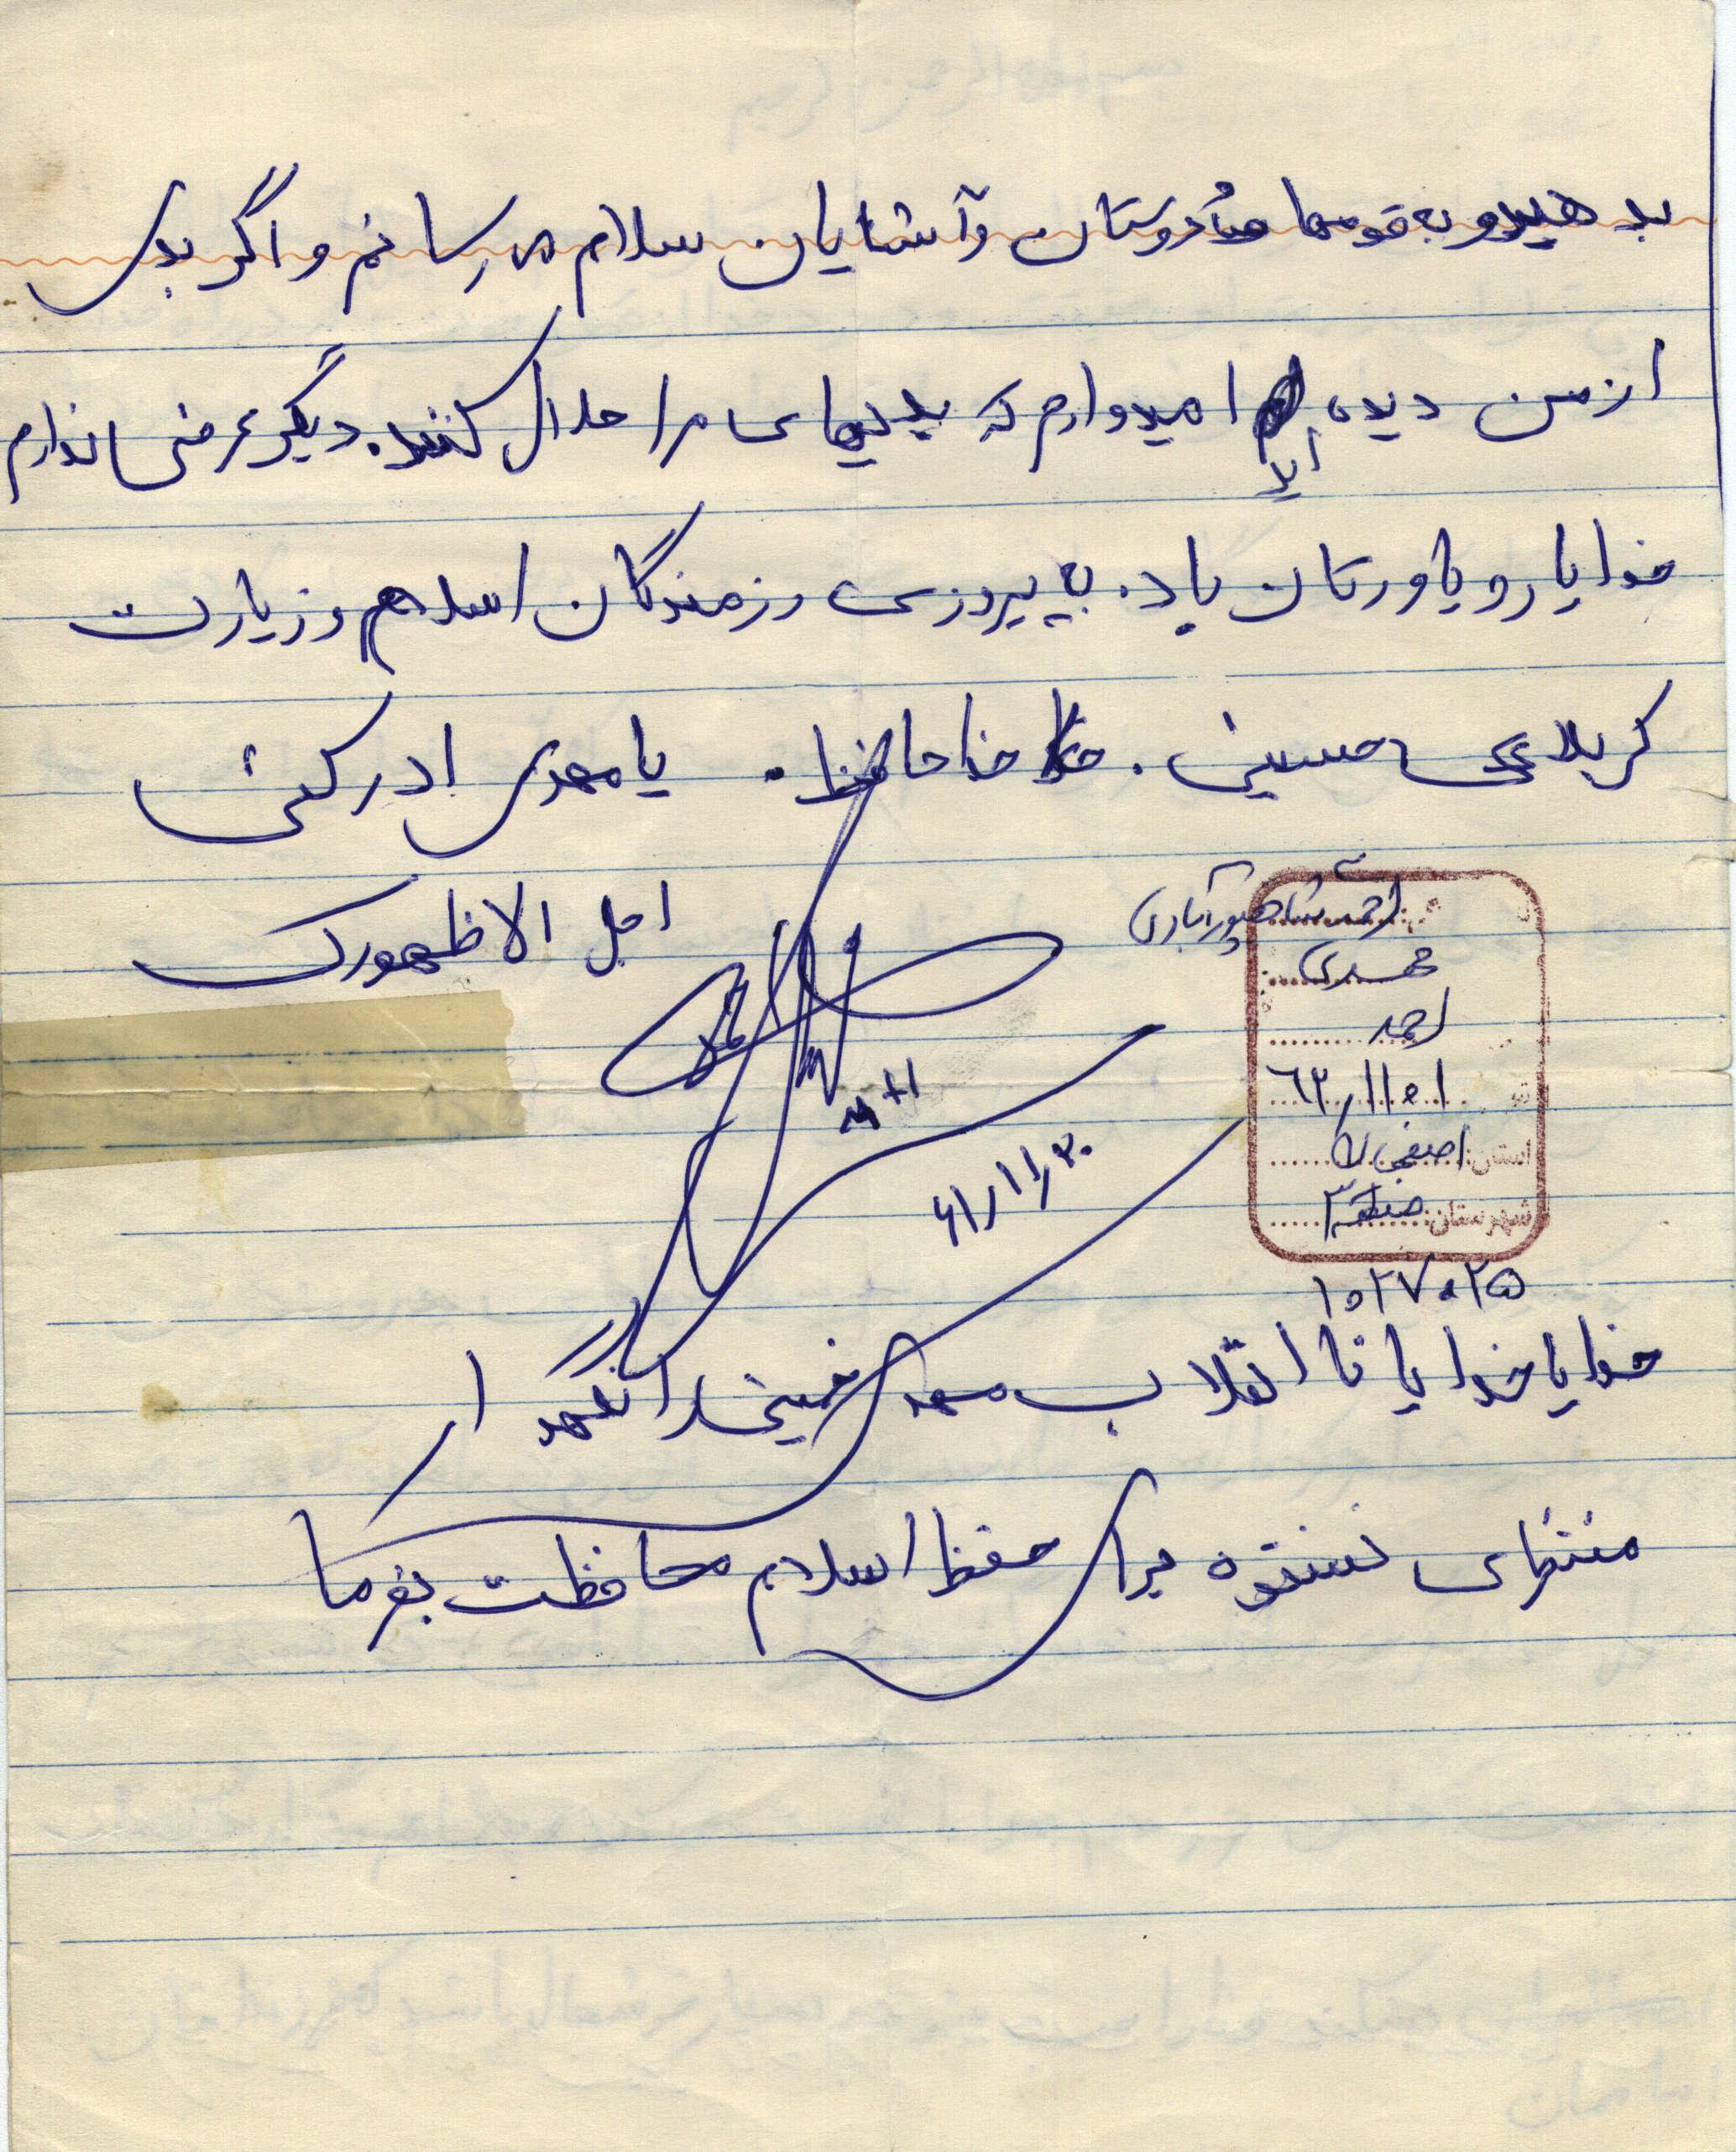 بدهید و به قومها و دوستان و آشنایان سلام می رسانم و اگر بدی
از من دیده اید امیدوارم که بدیهای مرا حلال کنند. دیگر عرضی ندارم
خدا یار و یاورتان باد. به پیروزی رزمندگان اسلام و زیارت
کربلای حسین. خدا حافظ. یا مهدی ادرکنی
اجل الا ظهورک
احمد شاهپورآبادی
محمدی
احمد
۶۲/۱۱۰۱
استان: اصفهان
شهرستان: منطقه ۳
۱۰۲۷۰۲۵
۶۱/۱۱/۳۰
خدایا خدایا تا انقلاب مهدی خمینی را نگهدار
منتظری نستوه برای حفظ اسلام محافظت بفرما